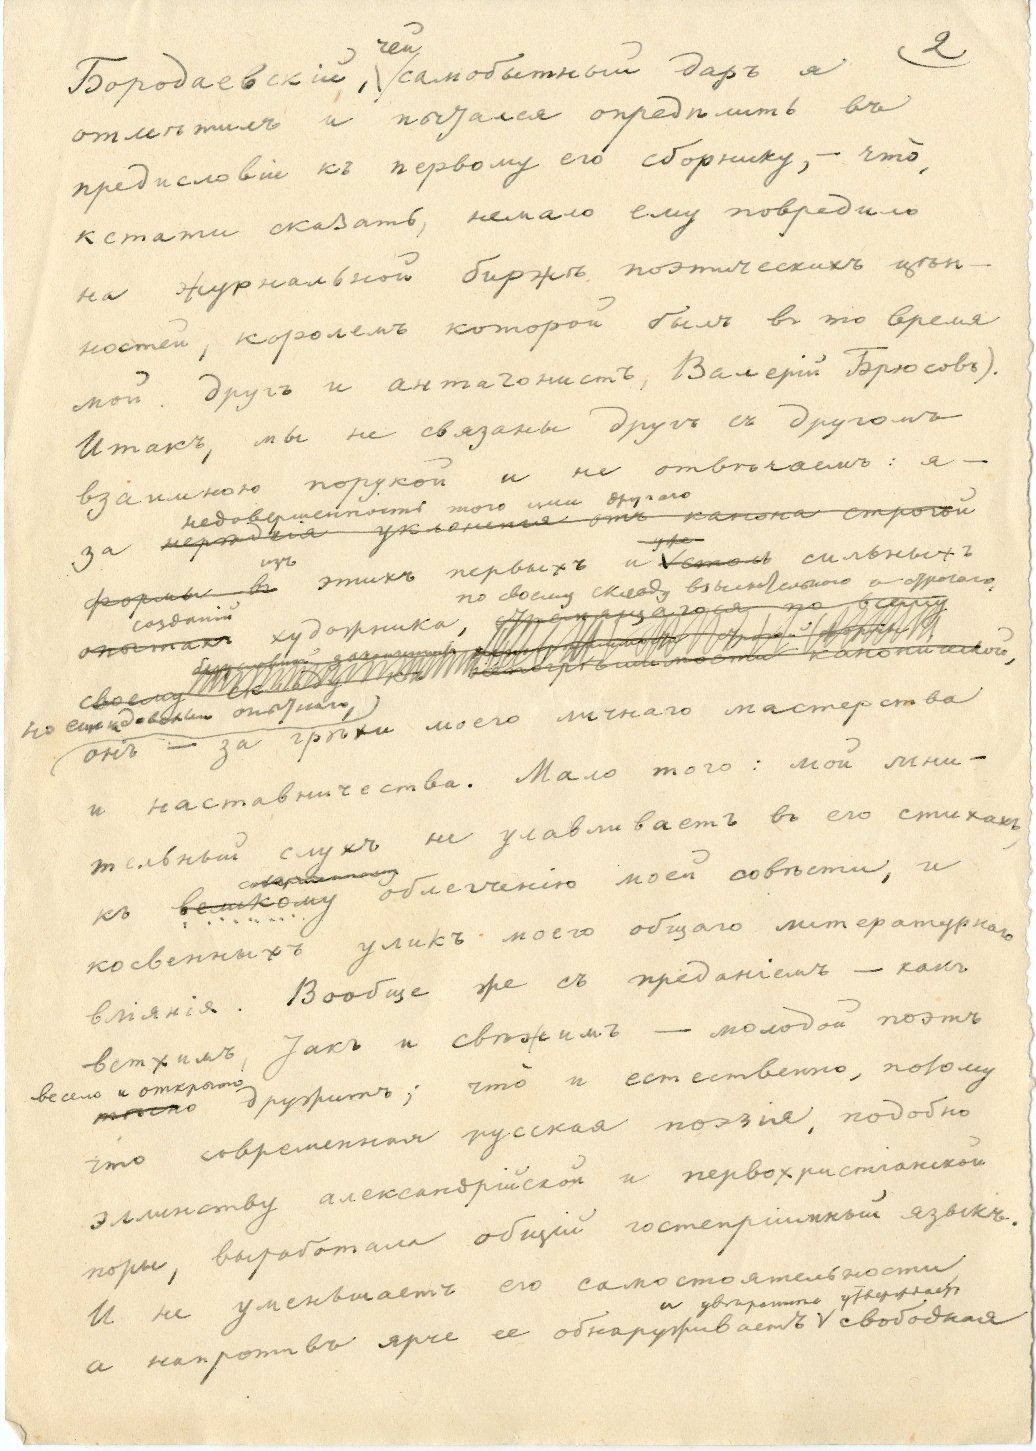 2
чей
Бородаевскій, самобытный даръ я
отмѣтилъ и пытался опредѣлить въ
предисловіи къ первому его сборнику, – что̀,
кстати сказать, немало ему повредило
на журнальной биржѣ поэтическихъ цѣн–
ностей, королемъ которой былъ въ то время
мой другъ и антагонистъ, Валерій Брюсовъ).
Итакъ, мы не связаны другъ съ другомъ
взаимною порукой и не отвѣчаемъ: я –
недовершенность того или другого
за уклоненія отъ канона строгой
изъ уже
формы въ этихъ первыхъ и столь сильныхъ
по своему складу взыскательного и строгаго,
созданій
опытахъ художника, по всему
своему складу къ непогрѣшимости канонической,
но еще опытнаго,
онъ – за грѣхи моего личнаго мастерства
и наставничества. Мало того: мой мни–
тельный слухъ не улавливаетъ въ его стихахъ,
къ великому облегченію моей совѣсти, и
косвенныхъ уликъ моего общаго литературнаго
вліянія. Вообще же съ преданіемъ – какъ
ветхимъ, такъ и свѣжимъ – молодой поэтъ
весело и открыто
тѣсно дружитъ; что̀ и естественно, потому
что современная русская поэзія, подобно
эллинству александрійской и первохристіанской
поры, выработала общій гостепріимный языкъ.
И не уменьшаетъ его самостоятельности
и утверждаетъ
а напротивъ ярче ее обнаруживаетъ свободная